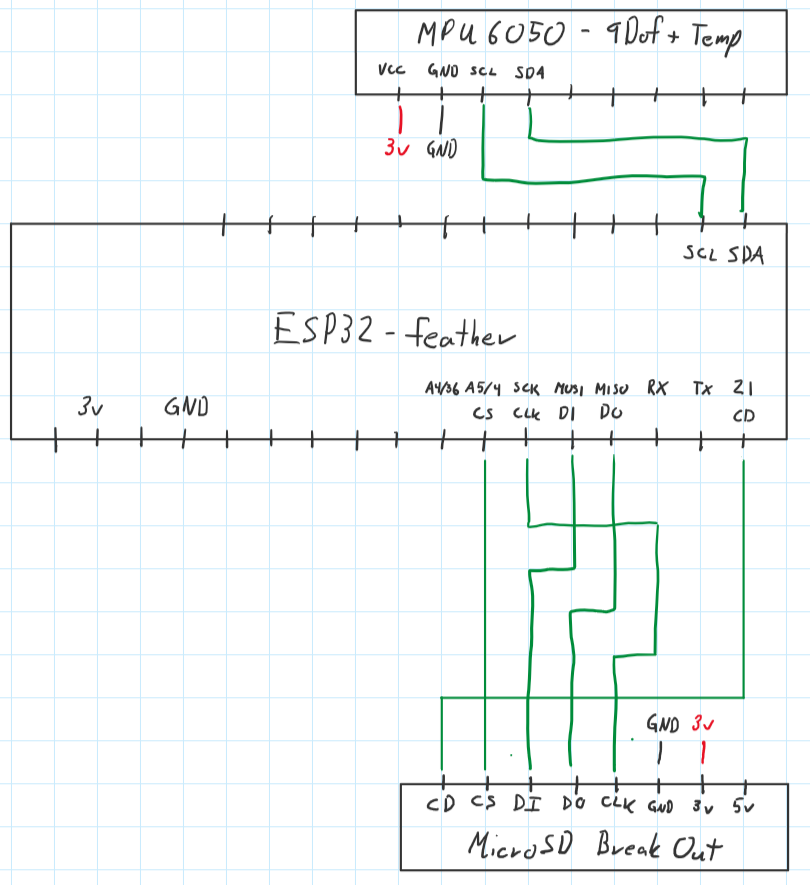 MPU 6050 - 9Dof + Temp
VCC GND SCL SDA
3v GND
SCL SDA
ESP32 - feather
A4/36 A5/4 SCK MOSI MISO RX TX 21
3v GND CS CLK DI DO CD
GND 3v
CD CS DI DO CLK GND 3v 5v
MicroSD Break Out